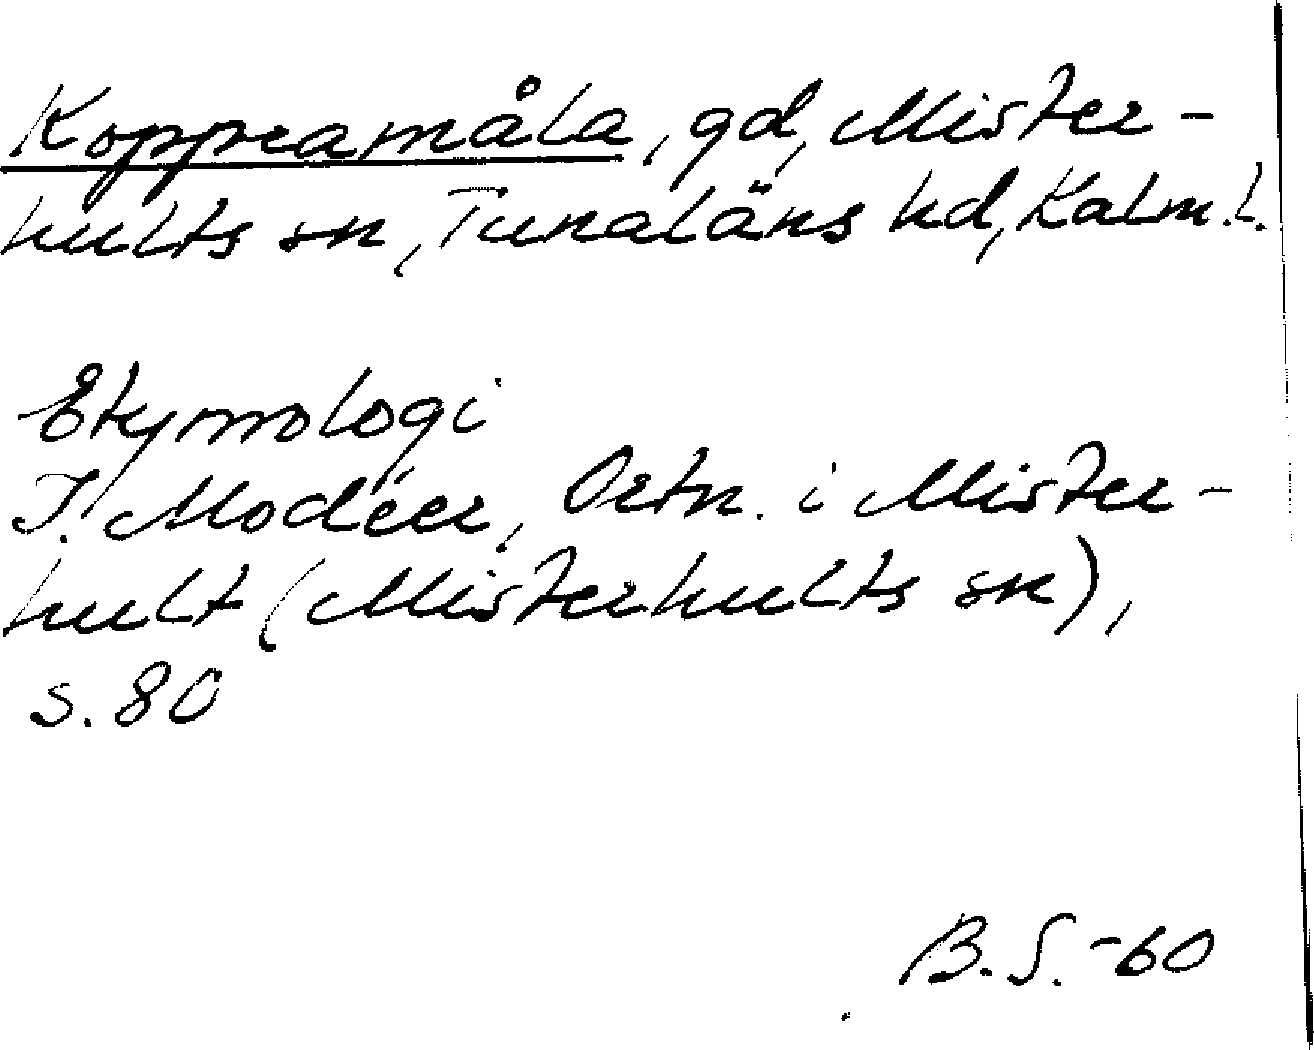 Koppramåla, gd, Mister-
hults sn, Tunaläns hd, Kalm. l.
Etymologi
I. Modéer, Ortn. i Mister-
hult (Misterhults sn),
s. 80
B. S. -60